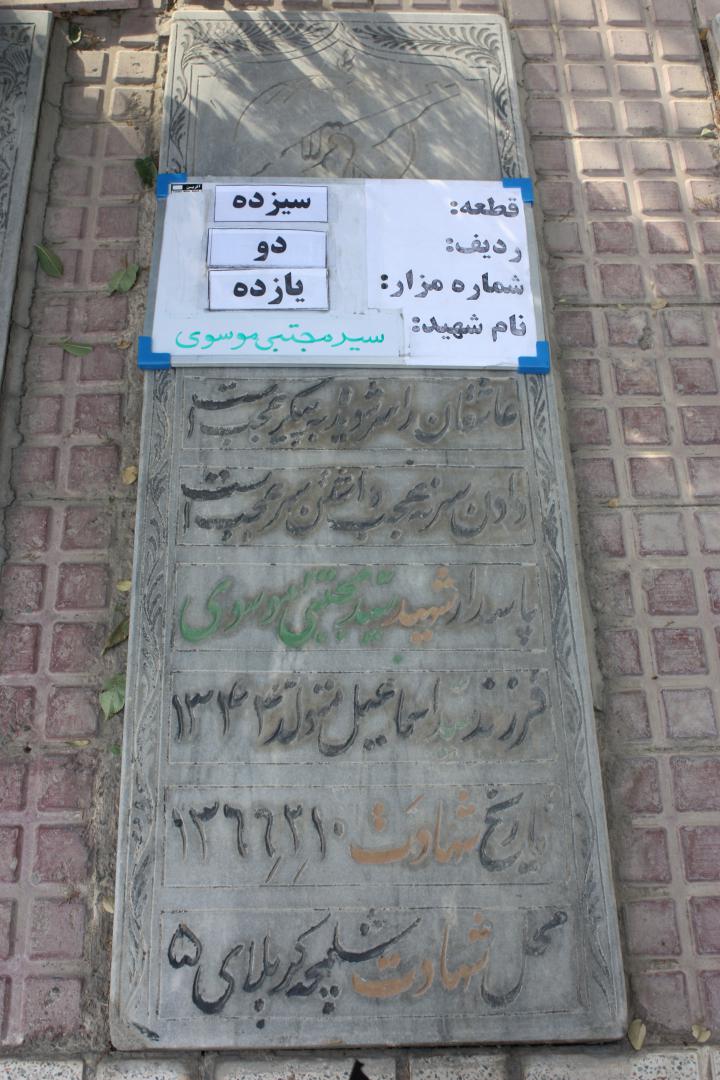 قطعه: سیزده
ردیف: دو
شماره مزار: یازده
نام شهید: سید مجتبی موسوی
عاشقان را سر شوریده به پیکر عجب است
دادن سر نه عجب داشتن سر عجب است
پاسدار شهید سید مجتبی موسوی
فرزند سید اسماعیل متولد ۱۳۴۳
تاریخ شهادت ۱۳۶۶
محل شهادت شلمچه کربلای ۵